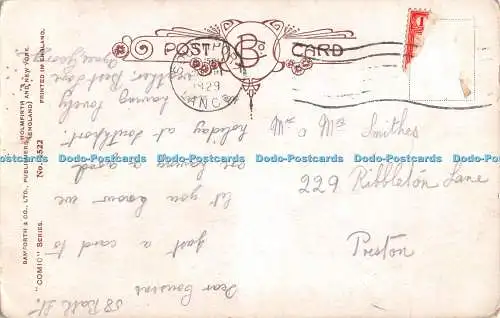 POST CARD
B Co
1929
LANCS
"COMIC" SERIES.
BAMFORTH & CO., LTD., PUBLISHERS, HOLMFIRTH (ENGLAND) AND NEW YORK.
PRINTED IN ENGLAND.
58 Bath St.
Dear Cousins
Just a card to
let you know we
are having a good
holiday at Southport.
having lovely
weather. Best love
Mr & Mrs Smithes
229 Ribbleton Lane
Preston
Dodo-Postcards Dodo-Postcards Dodo-Postcards Dodo-Postcards Dodo-Postcards